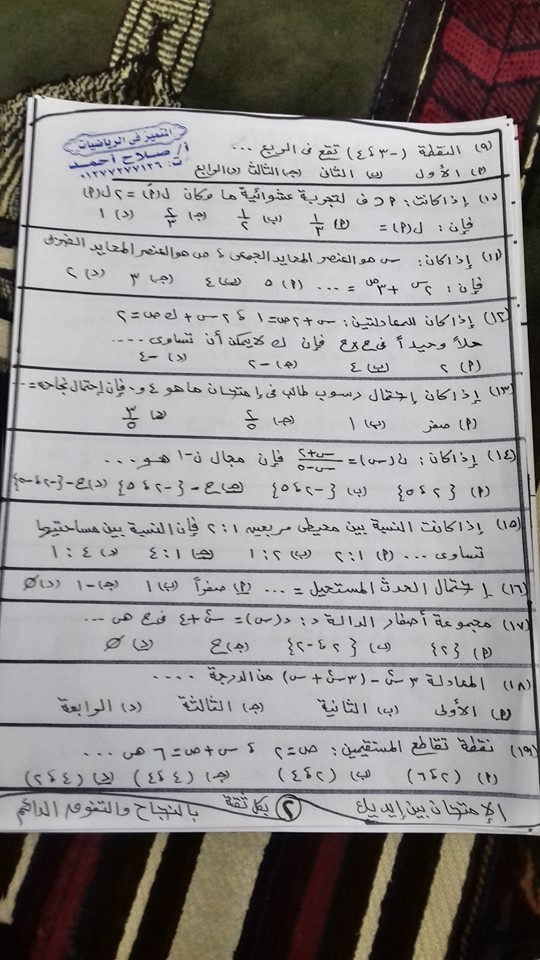 المتميز فى الرياضيات
أ/ صلاح أحمد
ت: ٠١٢٧٧٢٧٧١٢٦
(٩) النقطة (-٣ ، ٤) تقع فى الربع ...
(أ) الأول (ب) الثانى (جـ) الثالث (د) الرابع
(١٠) إذا كانت: أ ⊂ ف لتجربة عشوائية ما وكان ل(أَ) = ٢ ل(أ)
فإن: ل(أ) = (أ) ١/٣ (ب) ١/٢ (جـ) ٢/٣ (د) ١
(١١) إذا كان: س هو العنصر المحايد الجمعى ، ص هو العنصر المحايد الضربى
فإن: ٢^س + ٣^ص = ... (أ) ٥ (ب) ٤ (جـ) ٣ (د) ٢
(١٢) إذا كان للمعادلتين: س + ٢ص = ١ ، ٢س + ك ص = ٢
حلاً وحيداً فى ح×ح فإن ك لا يمكن أن تساوى ....
(أ) ٢ (ب) ٤ (جـ) -٢ (د) -٤
(١٣) إذا كان إحتمال رسوب طالب فى إمتحان ما هو ٤و٠ فإن إحتمال نجاحه = ...
(أ) صفر (ب) ١ (جـ) ٢/٥ (د) ٣/٥
(١٤) إذا كان: ن(س) = س+٢/س-٥ فإن مجال ن⁻¹ هو ...
(أ) {٢ ، ٥} (ب) {-٢ ، ٥} (جـ) ح - {-٢ ، ٥} (د) ح - {-٢ ، -٥}
(١٥) إذا كانت النسبة بين محيطى مربعين ١ : ٢ فإن النسبة بين مساحتيهما
تساوى ... (أ) ٢ : ١ (ب) ١ : ٢ (جـ) ١ : ٤ (د) ٤ : ١
(١٦) إحتمال الحدث المستحيل = ... (أ) صفراً (ب) ١ (جـ) -١ (د) ∅
(١٧) مجموعة أصفار الدالة د: د(س) = س² + ٤ فى ح هى ...
(أ) {٢} (ب) {٢ ، -٢} (جـ) ح (د) ∅
(١٨) المعادلة ٣س² - (٣س² + س) من الدرجة ....
(أ) الأولى (ب) الثانية (جـ) الثالثة (د) الرابعة
(١٩) نقطة تقاطع المستقيمين: ص = ٢ ، س + ص = ٦ هى ...
(أ) (٢ ، ٦) (ب) (٢ ، ٤) (جـ) (٤ ، ٤) (د) (٤ ، ٢)
الإمتحان بين إيديك ٢ بكل ثقة بالنجاح والتفوق الدائم